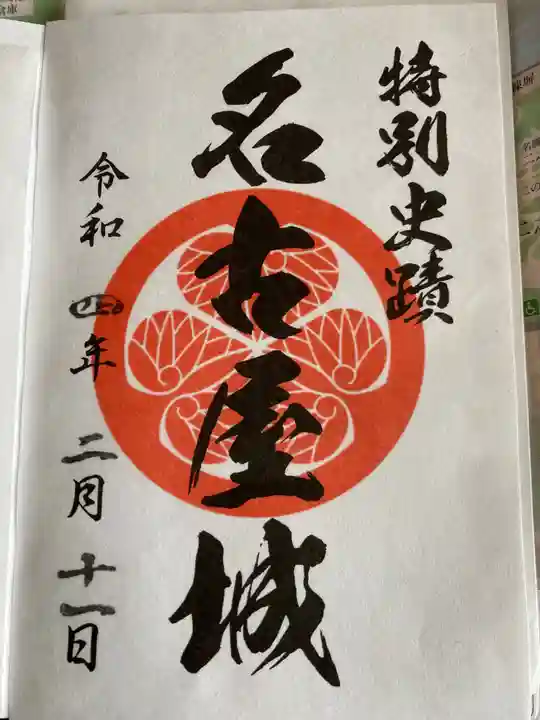 特別史蹟
名古屋城
令和四年二月十一日